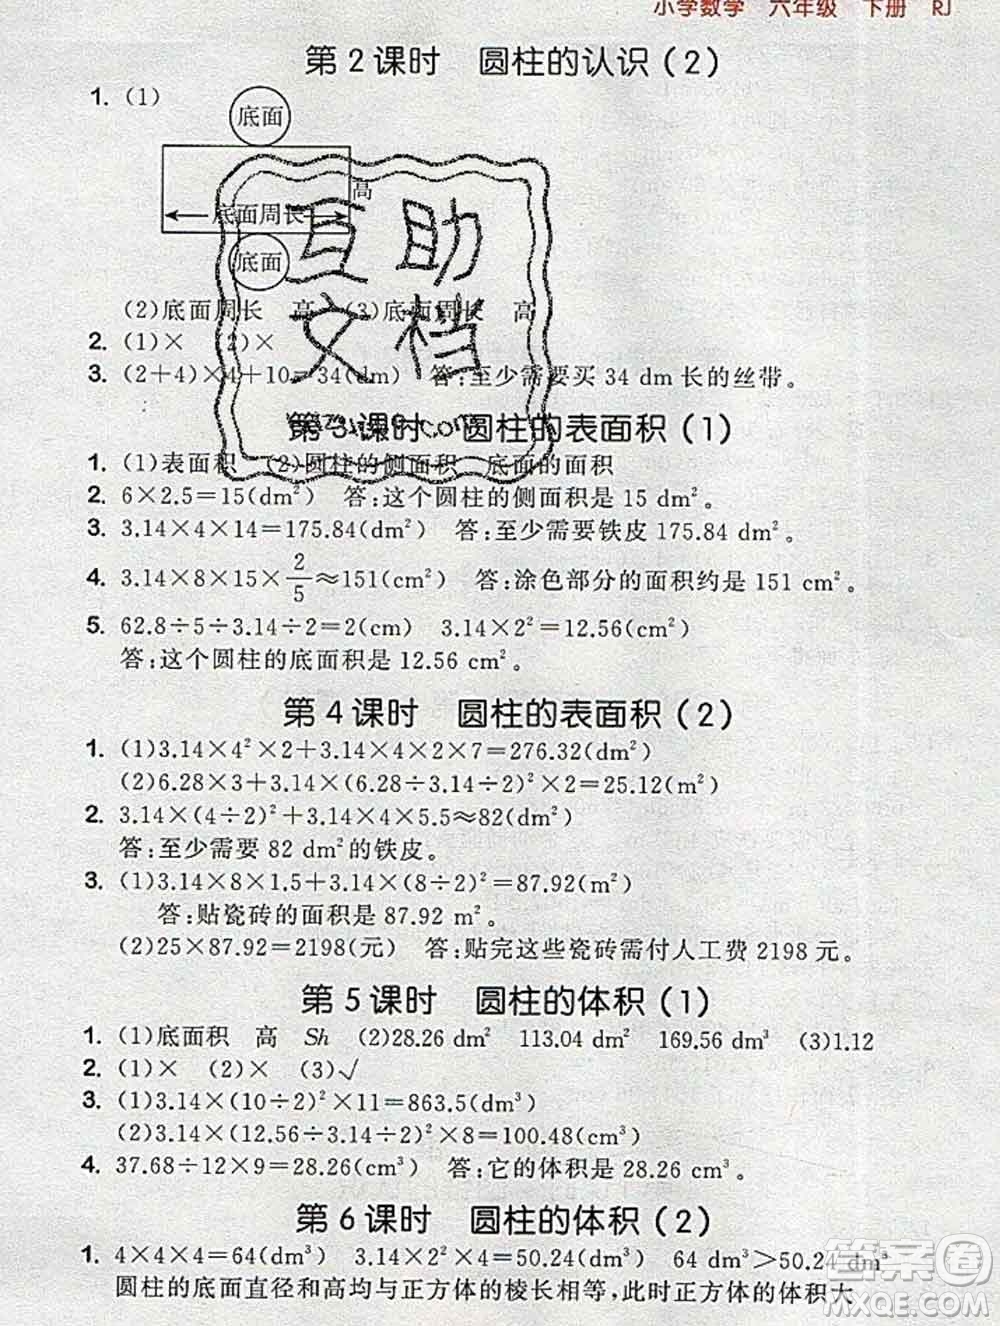 小学数学 六年级 下册 RJ
第2课时 圆柱的认识(2)
1. (1)
底面
高
底面周长
底面
(2)底面周长 高 (3)底面周长 高
2. (1)× (2)×
3. (2+4)×4+10=34(dm) 答:至少需要买 34 dm 长的丝带。
互助
文档
第3课时 圆柱的表面积(1)
1. (1)表面积 (2)圆柱的侧面积 底面的面积
2. 6×2.5=15(dm²) 答:这个圆柱的侧面积是 15 dm²。
3. 3.14×4×14=175.84(dm²) 答:至少需要铁皮 175.84 dm²。
4. 3.14×8×15×2/5≈151(cm²) 答:涂色部分的面积约是 151 cm²。
5. 62.8÷5÷3.14÷2=2(cm) 3.14×2²=12.56(cm²)
答:这个圆柱的底面积是 12.56 cm²。
第4课时 圆柱的表面积(2)
1. (1)3.14×4²×2+3.14×4×2×7=276.32(dm²)
(2)6.28×3+3.14×(6.28÷3.14÷2)²×2=25.12(m²)
2. 3.14×(4÷2)²+3.14×4×5.5≈82(dm²)
答:至少需要 82 dm²的铁皮。
3. (1)3.14×8×1.5+3.14×(8÷2)²=87.92(m²)
答:贴瓷砖的面积是 87.92 m²。
(2)25×87.92=2198(元) 答:贴完这些瓷砖需付人工费 2198 元。
第5课时 圆柱的体积(1)
1. (1)底面积 高 Sh (2)28.26 dm² 113.04 dm² 169.56 dm³ (3)1.12
2. (1)× (2)× (3)√
3. (1)3.14×(10÷2)²×11=863.5(dm³)
(2)3.14×(12.56÷3.14÷2)²×8=100.48(cm³)
4. 37.68÷12×9=28.26(cm³) 答:它的体积是 28.26 cm³。
第6课时 圆柱的体积(2)
1. 4×4×4=64(dm³) 3.14×2²×4=50.24(dm³) 64 dm³>50.24 dm³
圆柱的底面直径和高均与正方体的棱长相等,此时正方体的体积大
答案圈
MXQE.COM